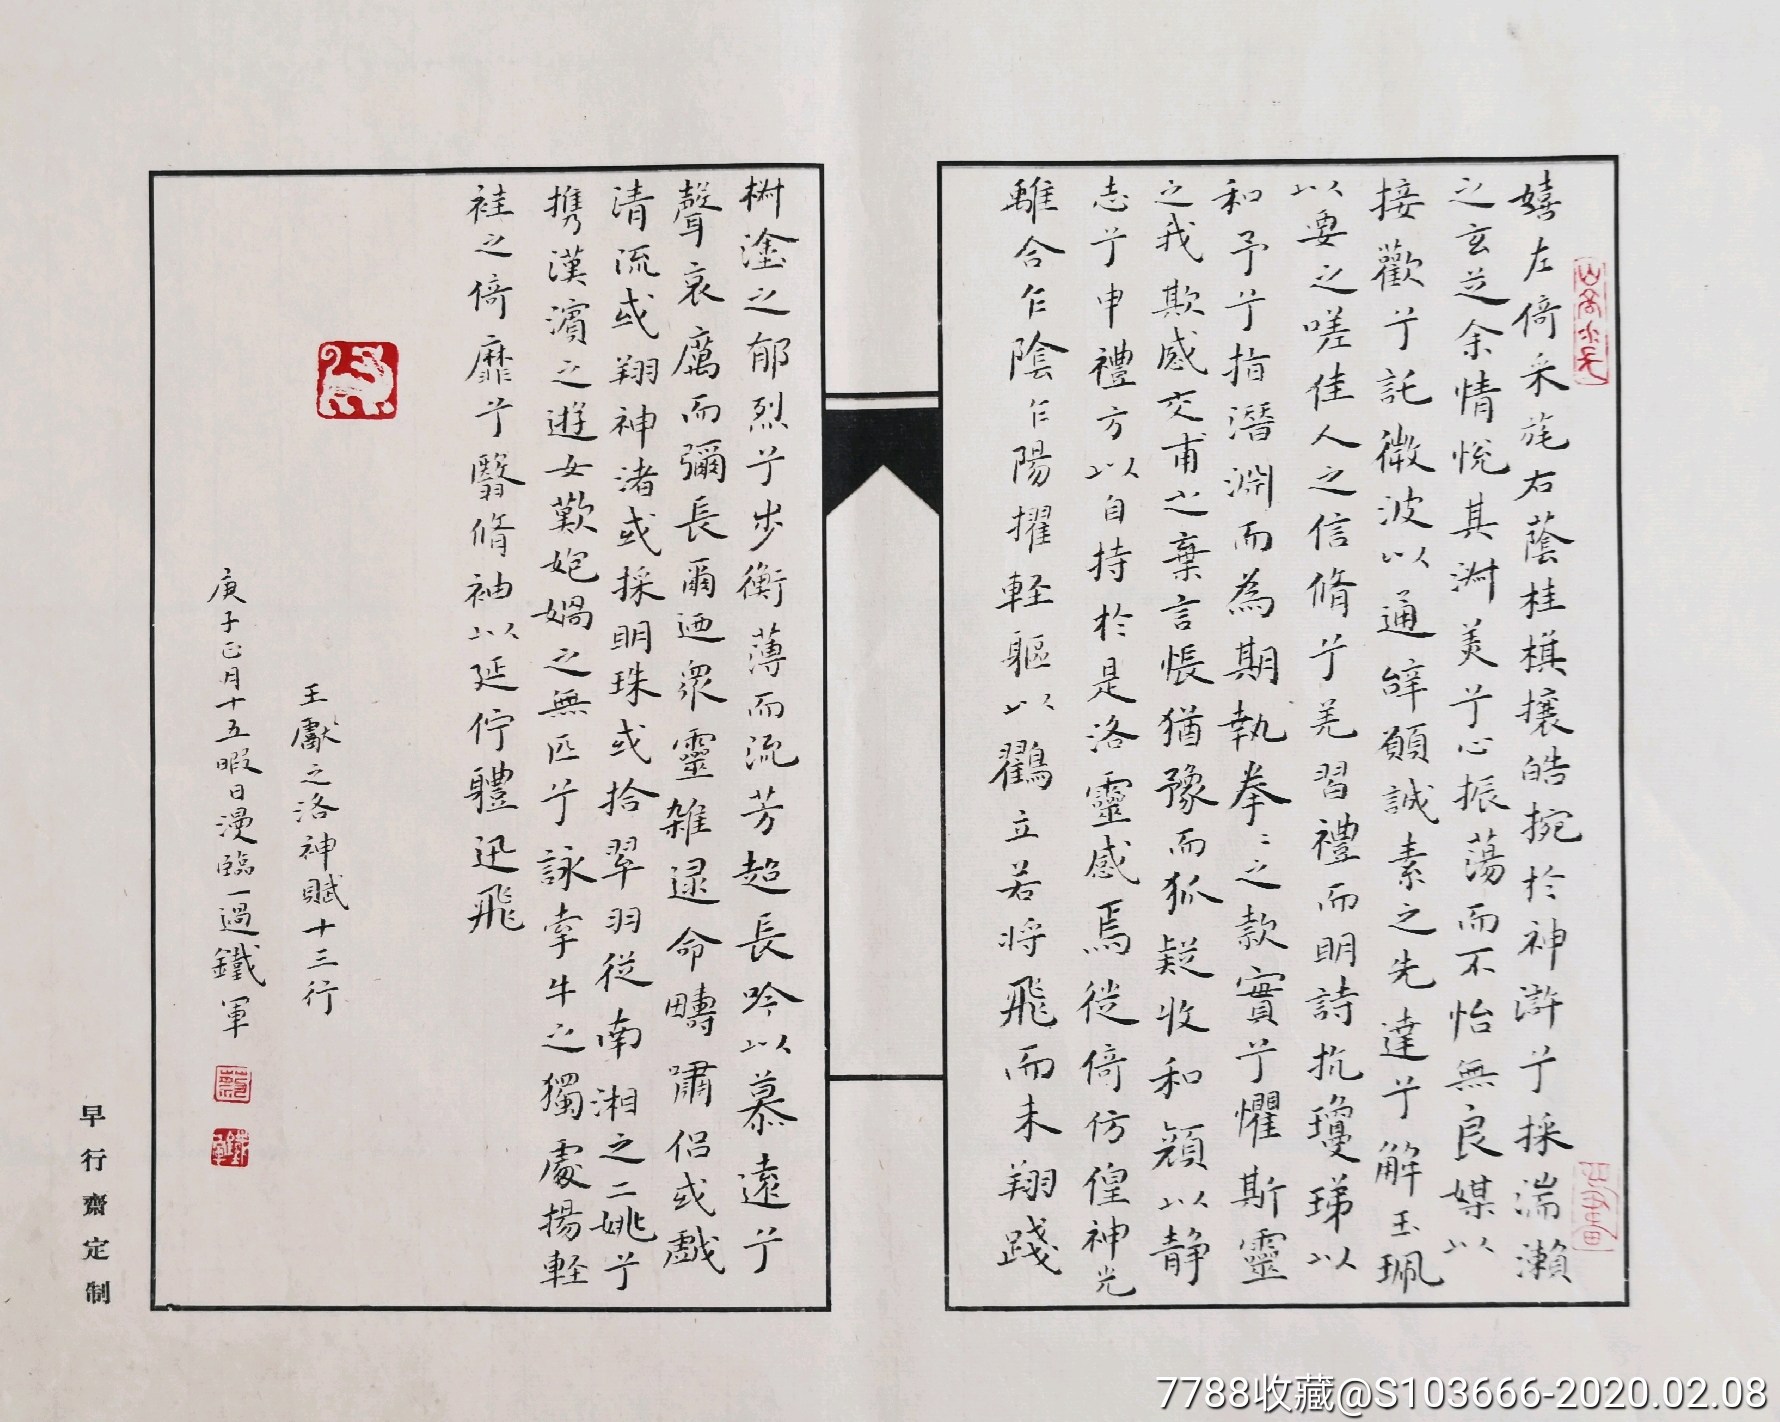 嬉左倚采旄右蔭桂棋攘皓捥於神滸兮採湍瀬
之玄芝余情悅其淋美兮心振蕩而不怡無良媒以
接歡兮託微波以通辝願誠素之先達兮解玉珮
以要之嗟佳人之信脩兮羌習禮而明詩抗瓊珶以
和予兮指潛淵而為期執拳〻之款實兮懼斯靈
之我欺感交甫之棄言悵猶豫而狐疑收和顏以静
志兮申禮方以自持於是洛靈感焉徙倚仿偟神光
離合乍陰乍陽擢軽軀以鸖立若将飛而未翔踐
椒塗之郁烈兮步衡薄而流芳超長吟以慕遠兮
聲哀厲而彌長爾迺衆靈雑遝命疇嘯侣或戯
清流或翔神渚或採明珠或拾翠羽従南湘之二姚兮
携漢濱之遊女歎匏媧之無匹兮詠牽牛之獨處揚軽
袿之倚靡兮翳脩袖以延佇軆迅飛
王獻之洛神賦十三行
庚子正月十五暇日漫臨一過鐵軍
早行齋定制
7788收藏@S103666-2020.02.08